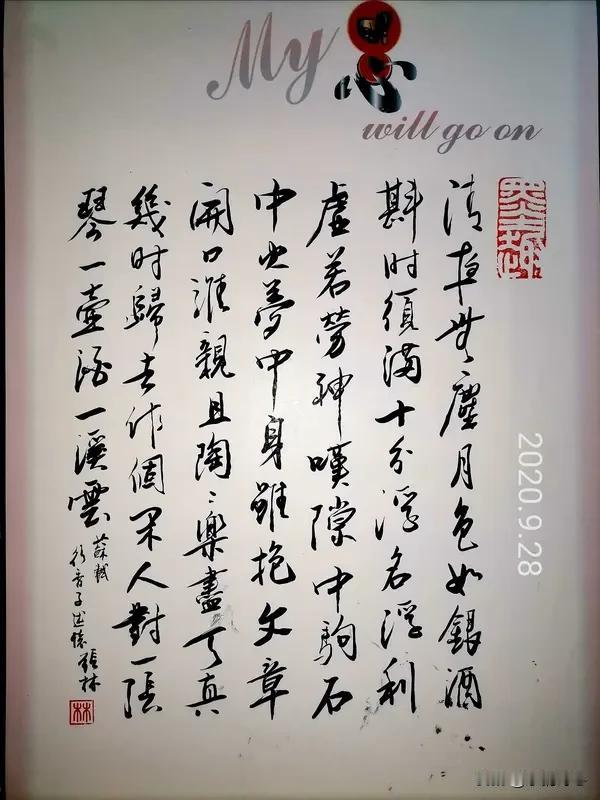 My
will go on
清夜無塵月色如銀酒
斟时須滿十分浮名浮利
虛苦勞神嘆隙中駒石
中火夢中身雖抱文章
開口誰親且陶〻樂盡天真
幾时歸去作個閑人對一張
琴一壺酒一溪雲
蘇軾
行香子述懷張林
林
2020.9.28